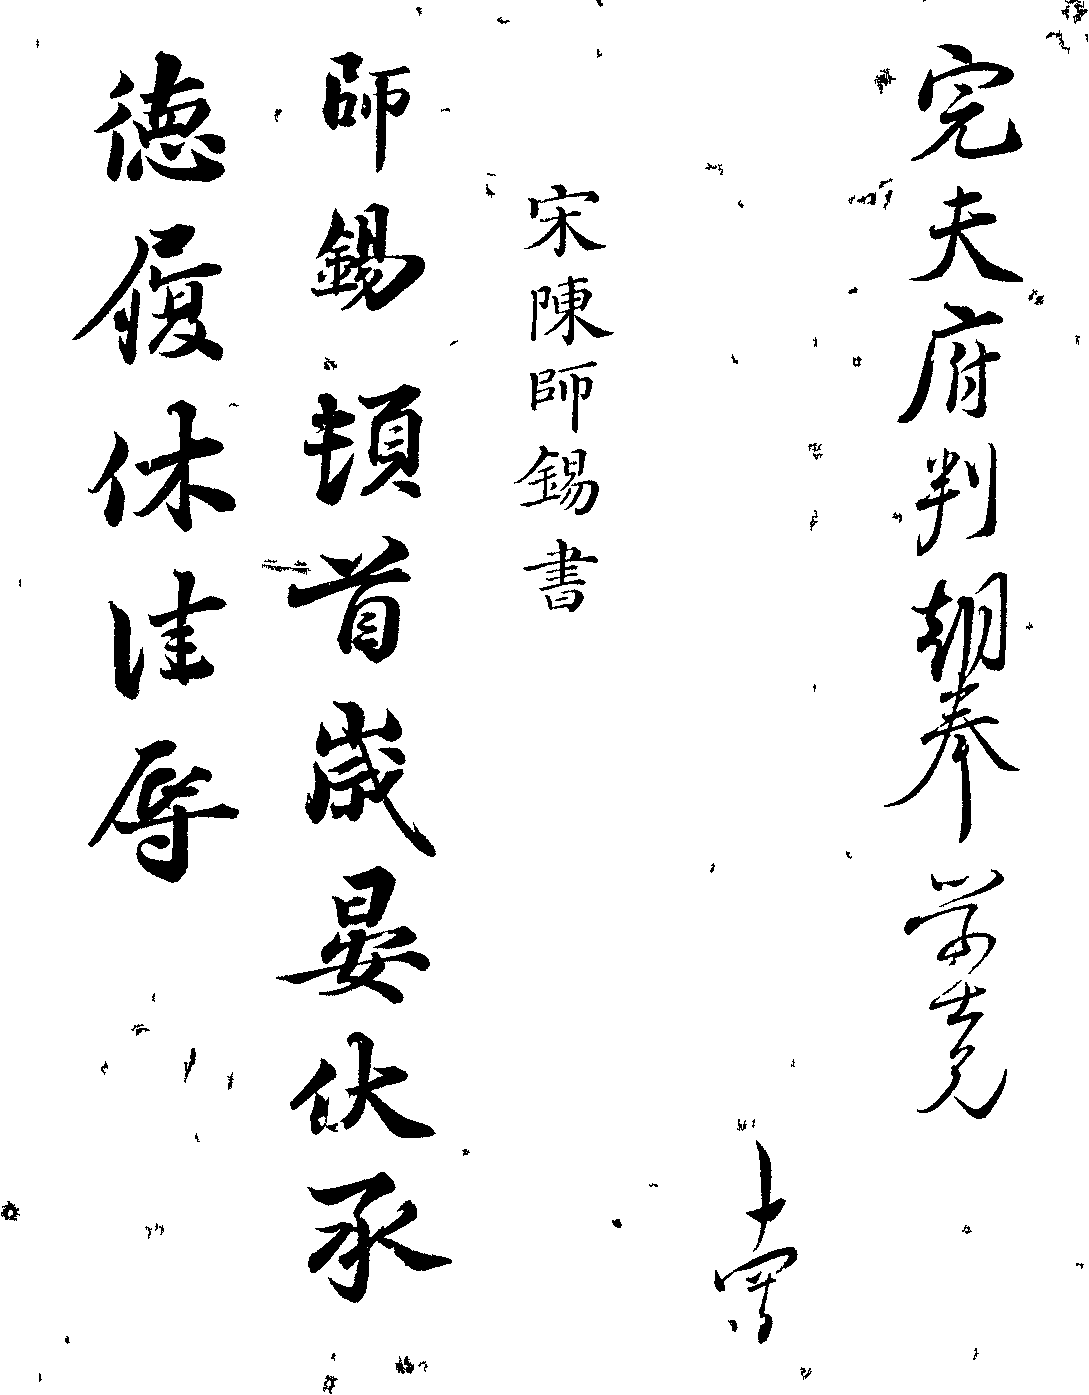 完夫府判朝奉學士兄
宋陳師錫書
師錫頓首歲晏伏承
德履休佳辱